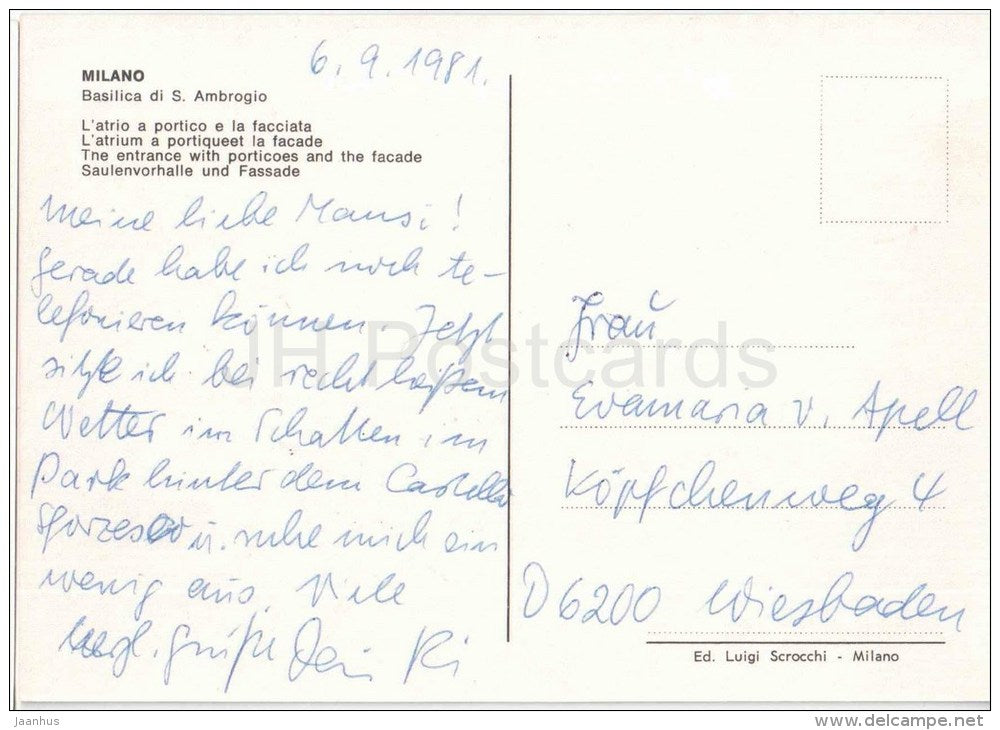 6.9.1981.
MILANO
Basilica di S. Ambrogio
L'atrio a portico e la facciata
L'atrium a portiqueet la facade
The entrance with porticoes and the facade
Saulenvorhalle und Fassade
Meine liebe Mausi!
gerade habe ich noch te-
lefonieren können. Jetzt
sitze ich bei recht heißem
Wetter im Schatten im
Park hinter dem Castello
Sforzesco u. ruhe mich ein
wenig aus. Viele
herzl. Grüße Dein Ki
Frau
Evamaria v. Apell
Köpfchenweg 4
D 6200 Wiesbaden
Ed. Luigi Scrocchi - Milano
JH Postcards
Jaanhus
www.delcampe.net